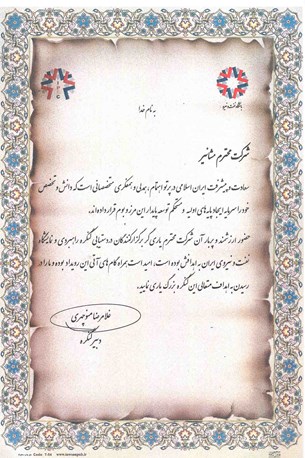 به نام خدا
شرکت محترم مشانیر
سعادت و پیشرفت ایران اسلامی در پرتو اهتمام، همدلی و همفکری متخصصانی است که دانش و تخصص
خود را سرمایه ایجاد پایه‌های اولیه و مستحکم توسعه پایدار این مرز و بوم قرار داده‌اند.
حضور ارزشمند و پربار آن شرکت محترم یاری گر برگزارکنندگان در دستیابی کنگره راهبردی و نمایشگاه
نفت و نیروی ایران به اهدافش بوده است، امید است همراه گام‌های آتی این رویداد بوده و ما را در
رسیدن به اهداف متعالی این کنگره بزرگ یاری نمایید.
غلامرضا منوچهری
دبیر کنگره